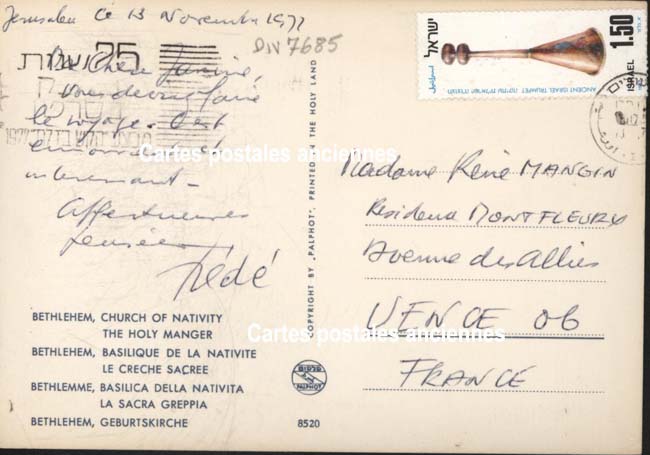 Jerusalem le 13 Novembre 1977
DN7685
25
Ma chère Janine,
vous devriez faire
le voyage. C'est
émouvant et
intéressant -
Affectueuses
pensées,
Dédé
BETHLEHEM, CHURCH OF NATIVITY
THE HOLY MANGER
BETHLEHEM, BASILIQUE DE LA NATIVITE
LE CRECHE SACREE
BETHLEMME, BASILICA DELLA NATIVITA
LA SACRA GREPPIA
BETHLEHEM, GEBURTSKIRCHE
8520
COPYRIGHT BY „PALPHOT", PRINTED IN THE HOLY LAND
פלפוט
PALPHOT
ישראל
اسرائيل
ANCIENT ISRAEL TRUMPET
1.50
ISRAEL
Madame René MANGIN
Residence MONTFLEURY
Avenue des Alliés
VENCE 06
FRANCE
Cartes postales anciennes
Cartes postales anciennes